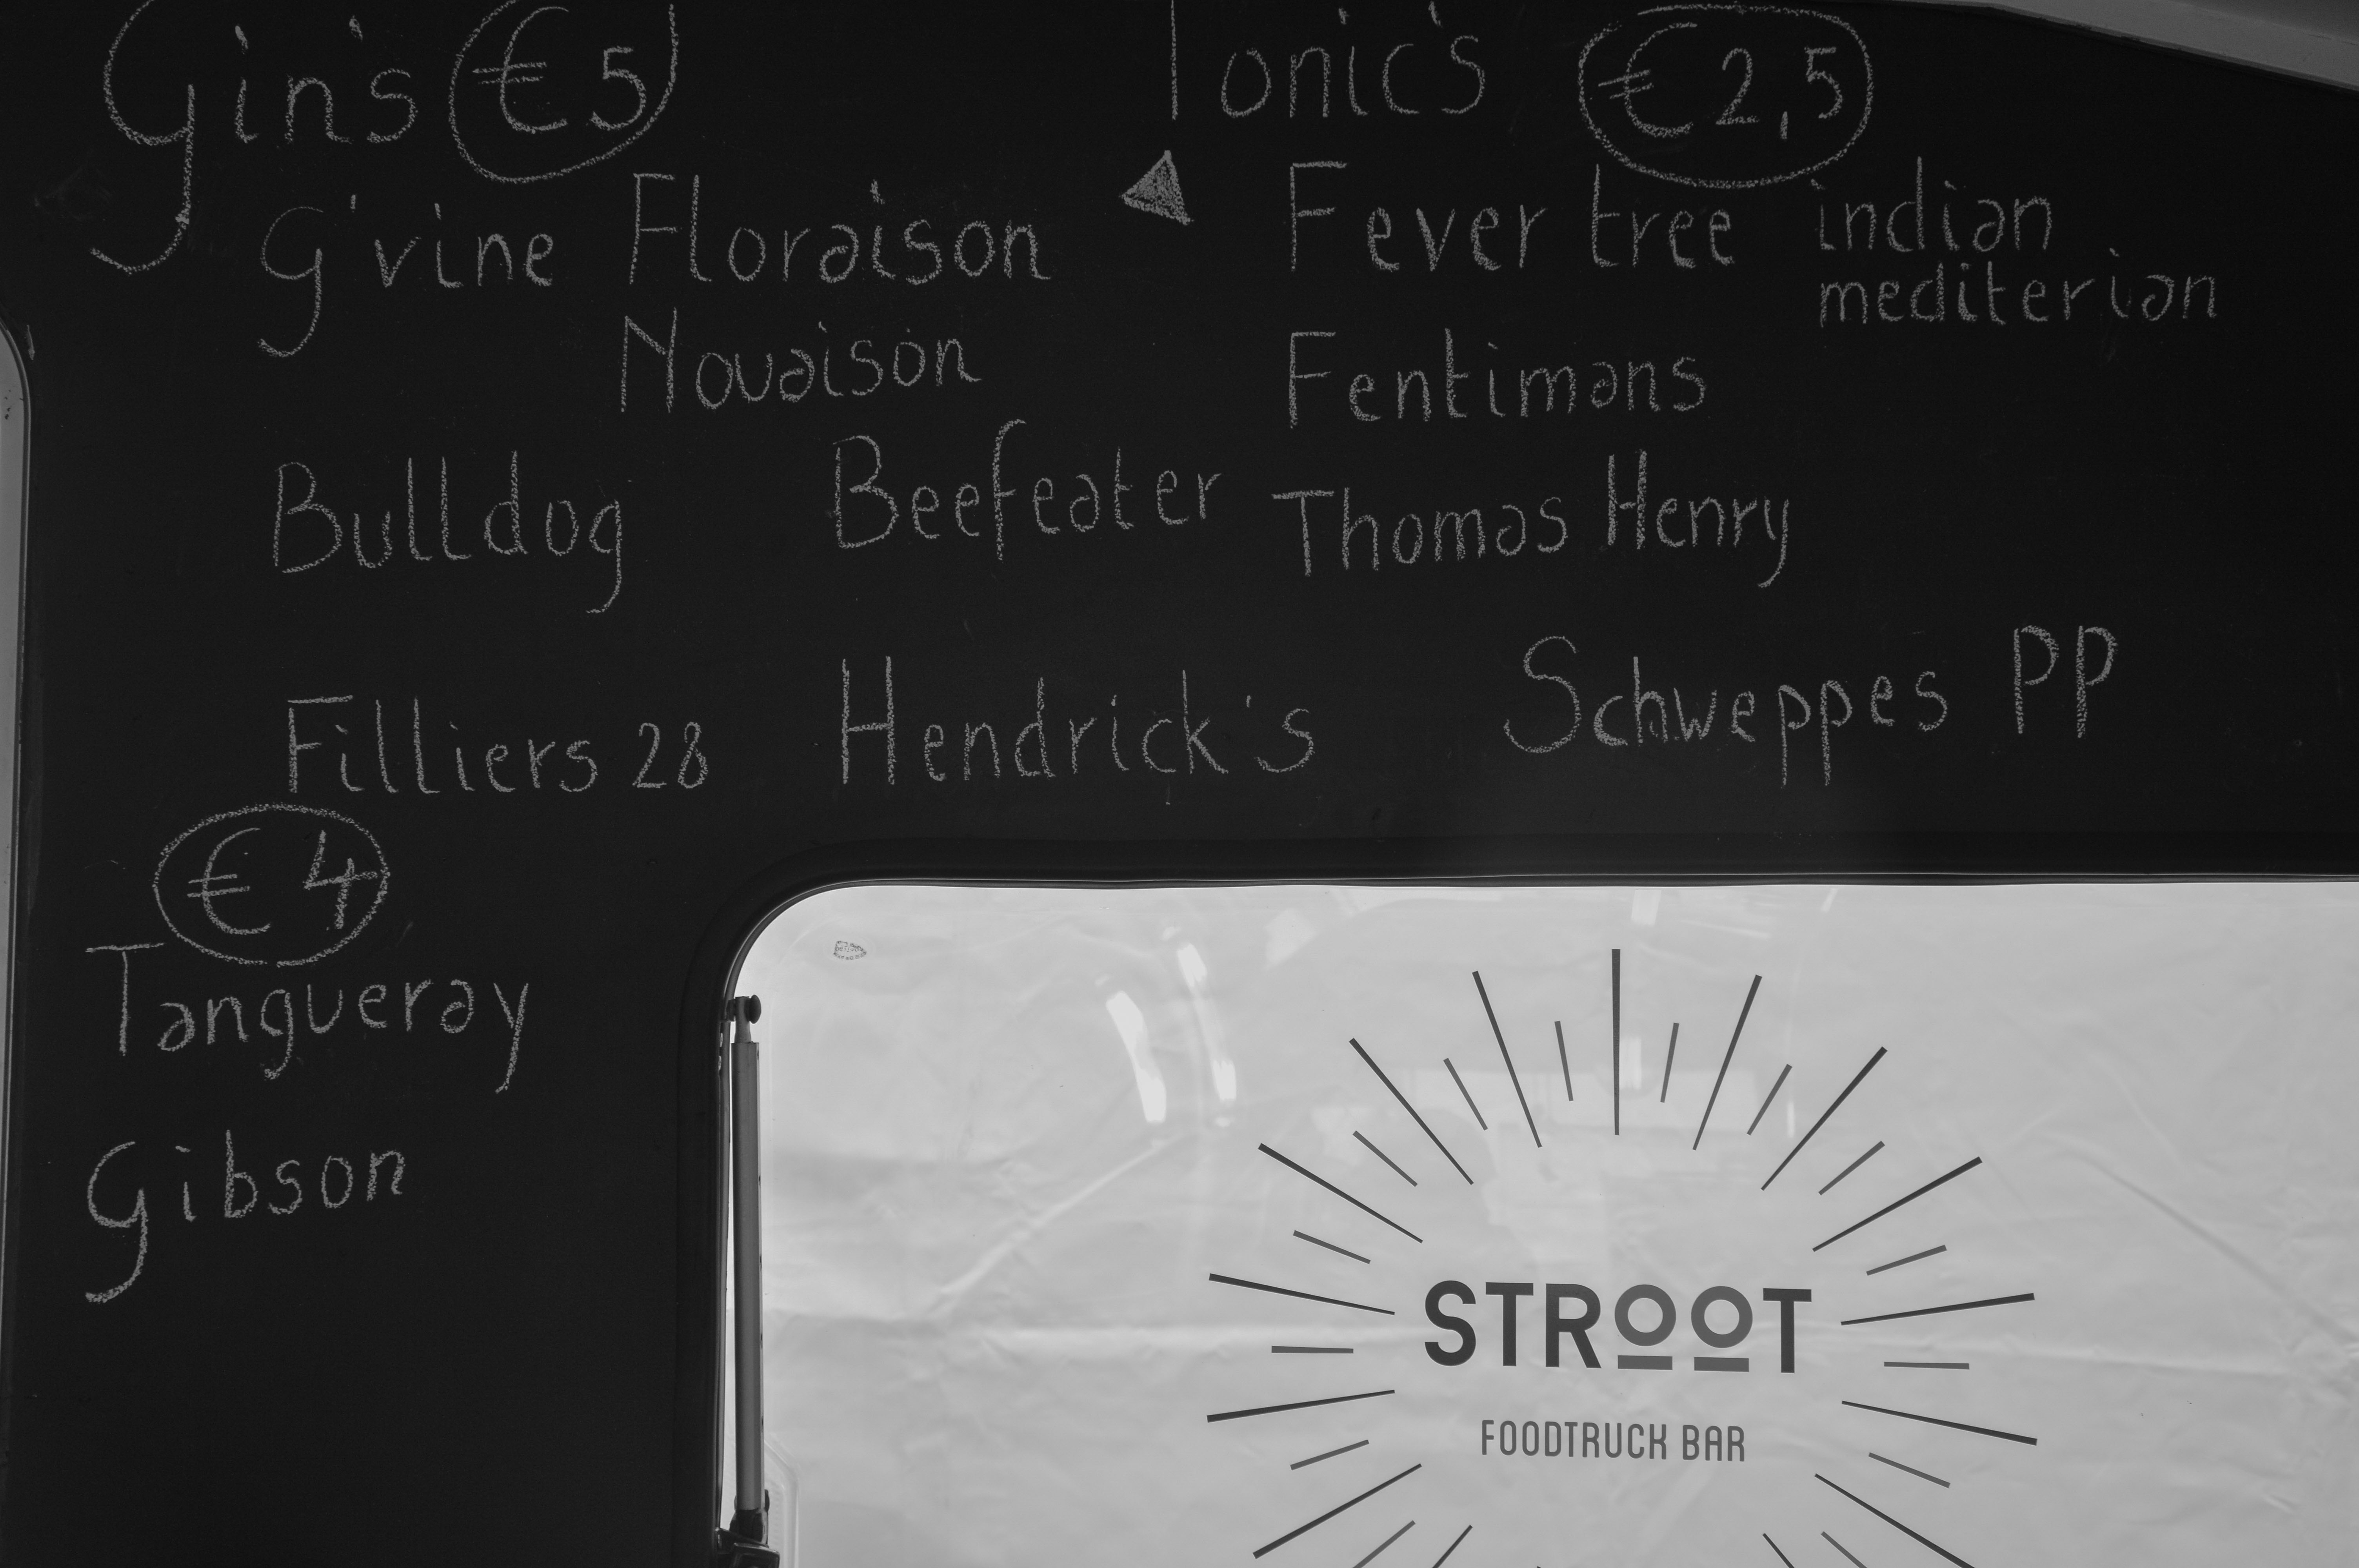 Gin's € 5
G'vine Floraison
Novaison
Bulldog Beefeater
Filliers 28 Hendrick's
€ 4
Tangueray
Gibson
Tonic's € 2,5
Fever tree indian
mediterian
Fentimans
Thomas Henry
Schweppes PP
STROOT
FOODTRUCK BAR